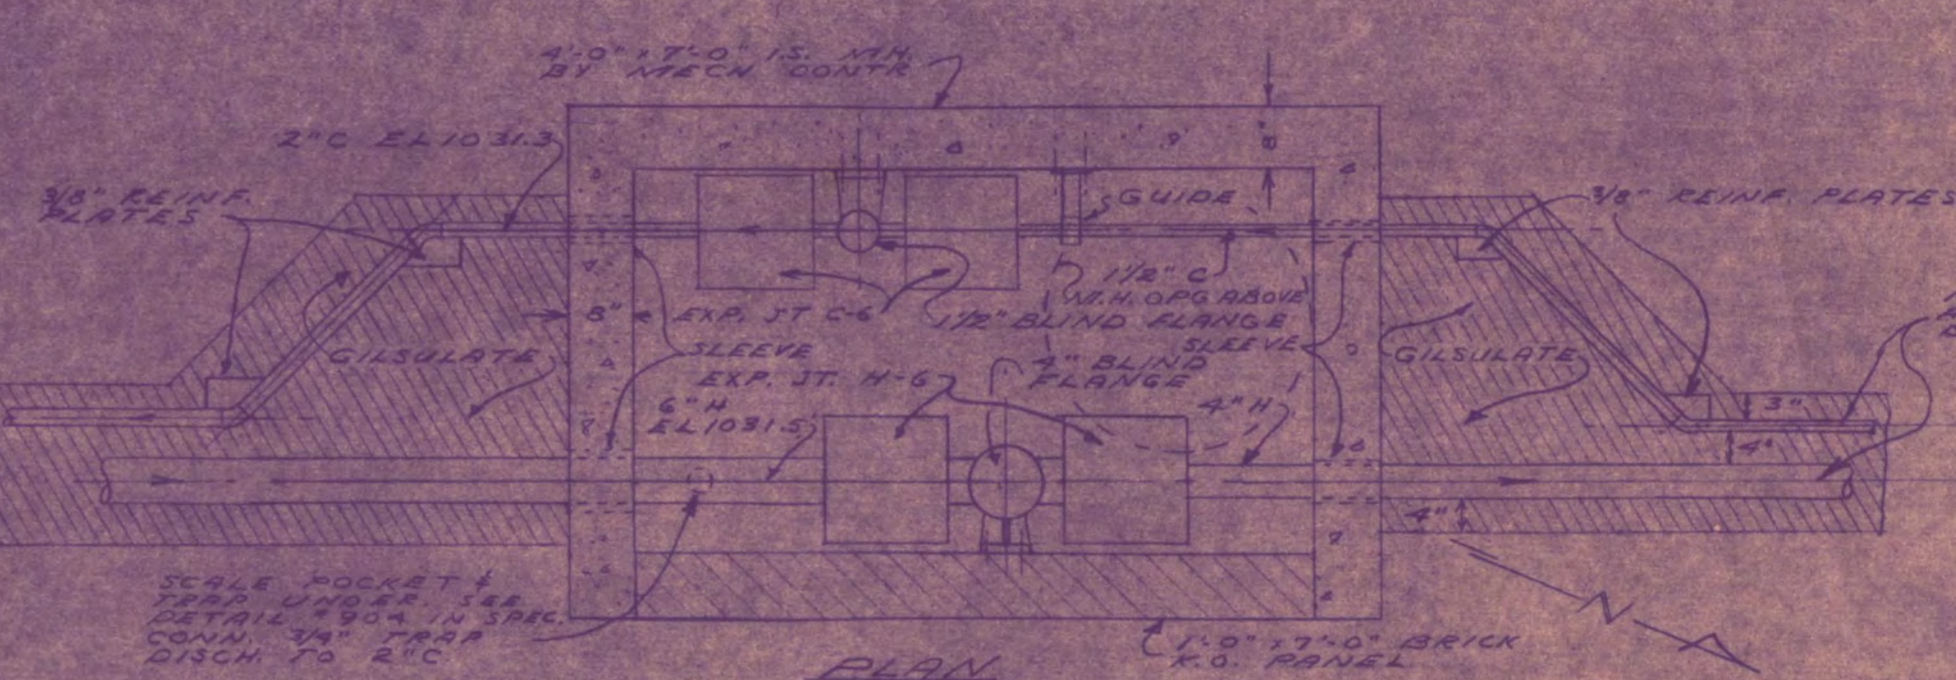 4'-0" x 7'-0" I.S. M.H.
BY MECH CONTR
2"C EL1031.3
3/8" REINF.
PLATES
8"
GUIDE
3/8" REINF. PLATES
1 1/2" C
M.H. OPG ABOVE
8"
EXP. JT C-6
1 1/2" BLIND FLANGE
GILSULATE
SLEEVE
SLEEVE
GILSULATE
EXP. JT. H-6
4" BLIND
FLANGE
6"H
EL1031.5
4"H
3"
4"
4"
SCALE POCKET &
TRAP UNDER. SEE
DETAIL #904 IN SPEC.
CONN. 3/4" TRAP
DISCH. TO 2"C
1'-0" x 7'-0" BRICK
K.O. PANEL
N
PLAN